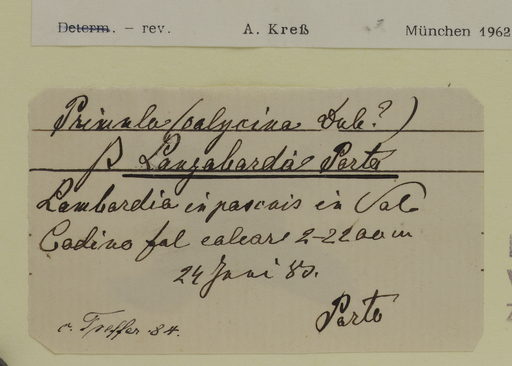 Determ. – rev. A. Kreß München 1962
Primula (calycina Dub.?)
β Langobarda Porta
Lombardia in pascuis in Val
Cadino sol calcar 2-2200 m
24 Juni 83.
Porta
c. Treffer 84.